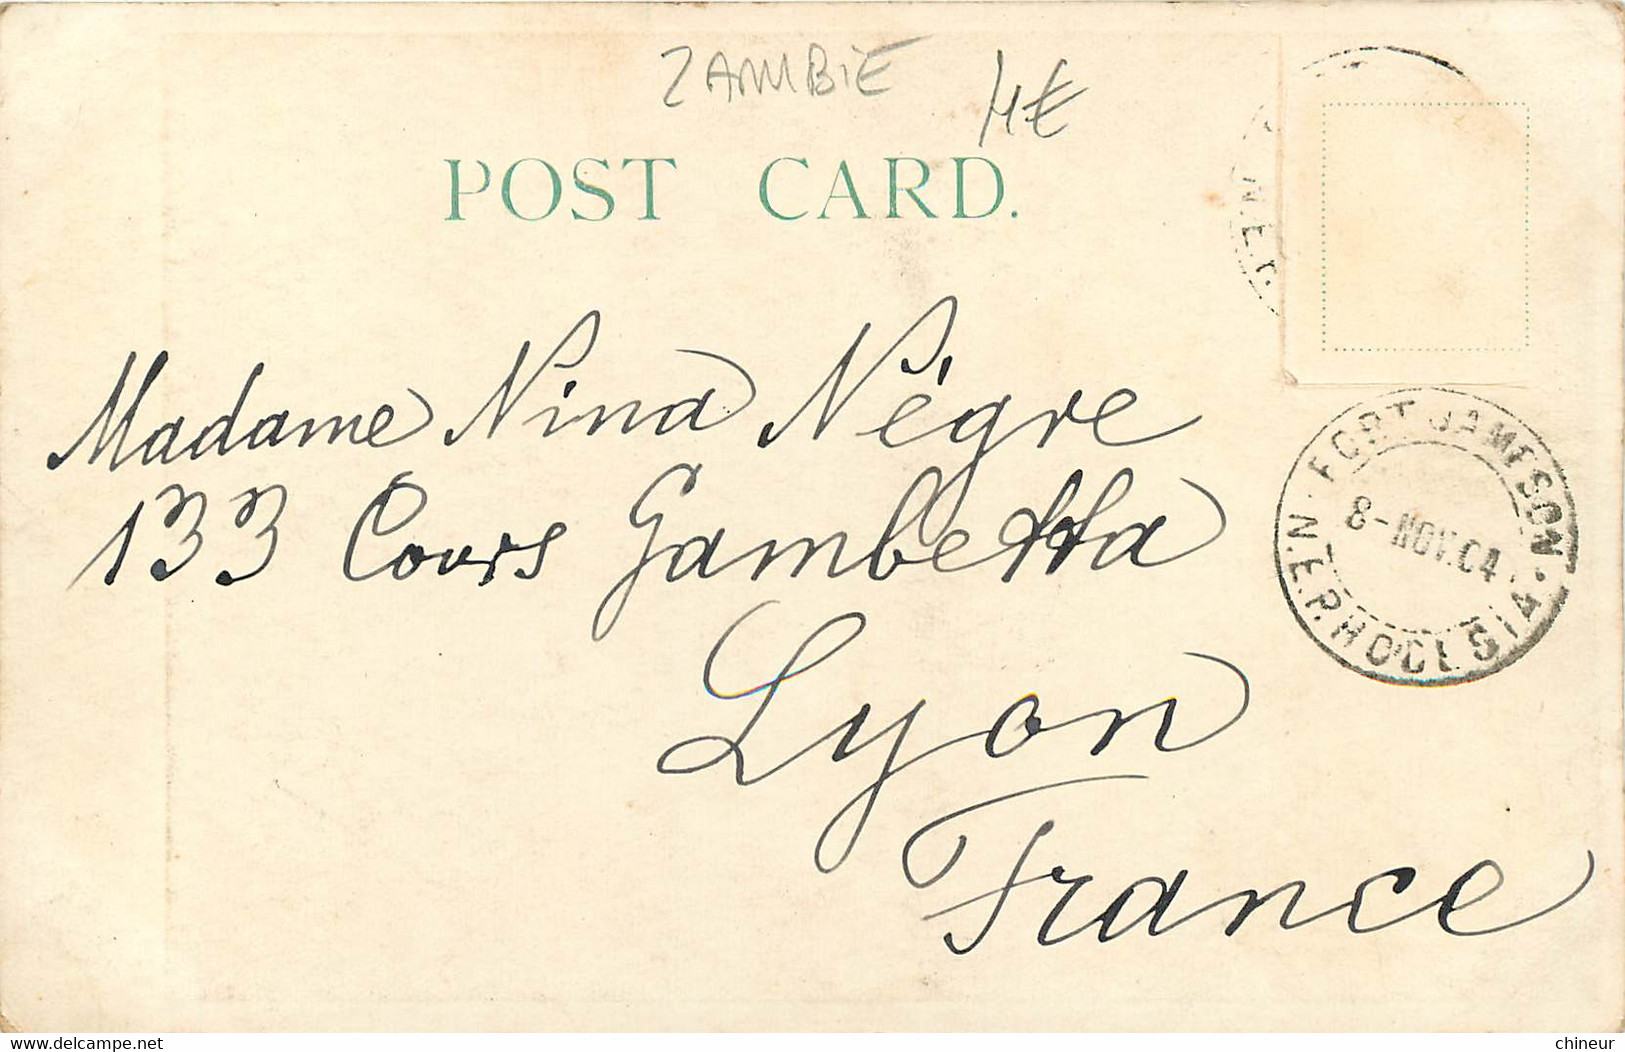 ZAMBIE
4€
POST CARD.
N.E.R
Madame Nina Nègre
133 Cours Gambetta
Lyon
France
FORT JAMESON
8-NOV.04
N.E.RHODESIA
www.delcampe.net
chineur